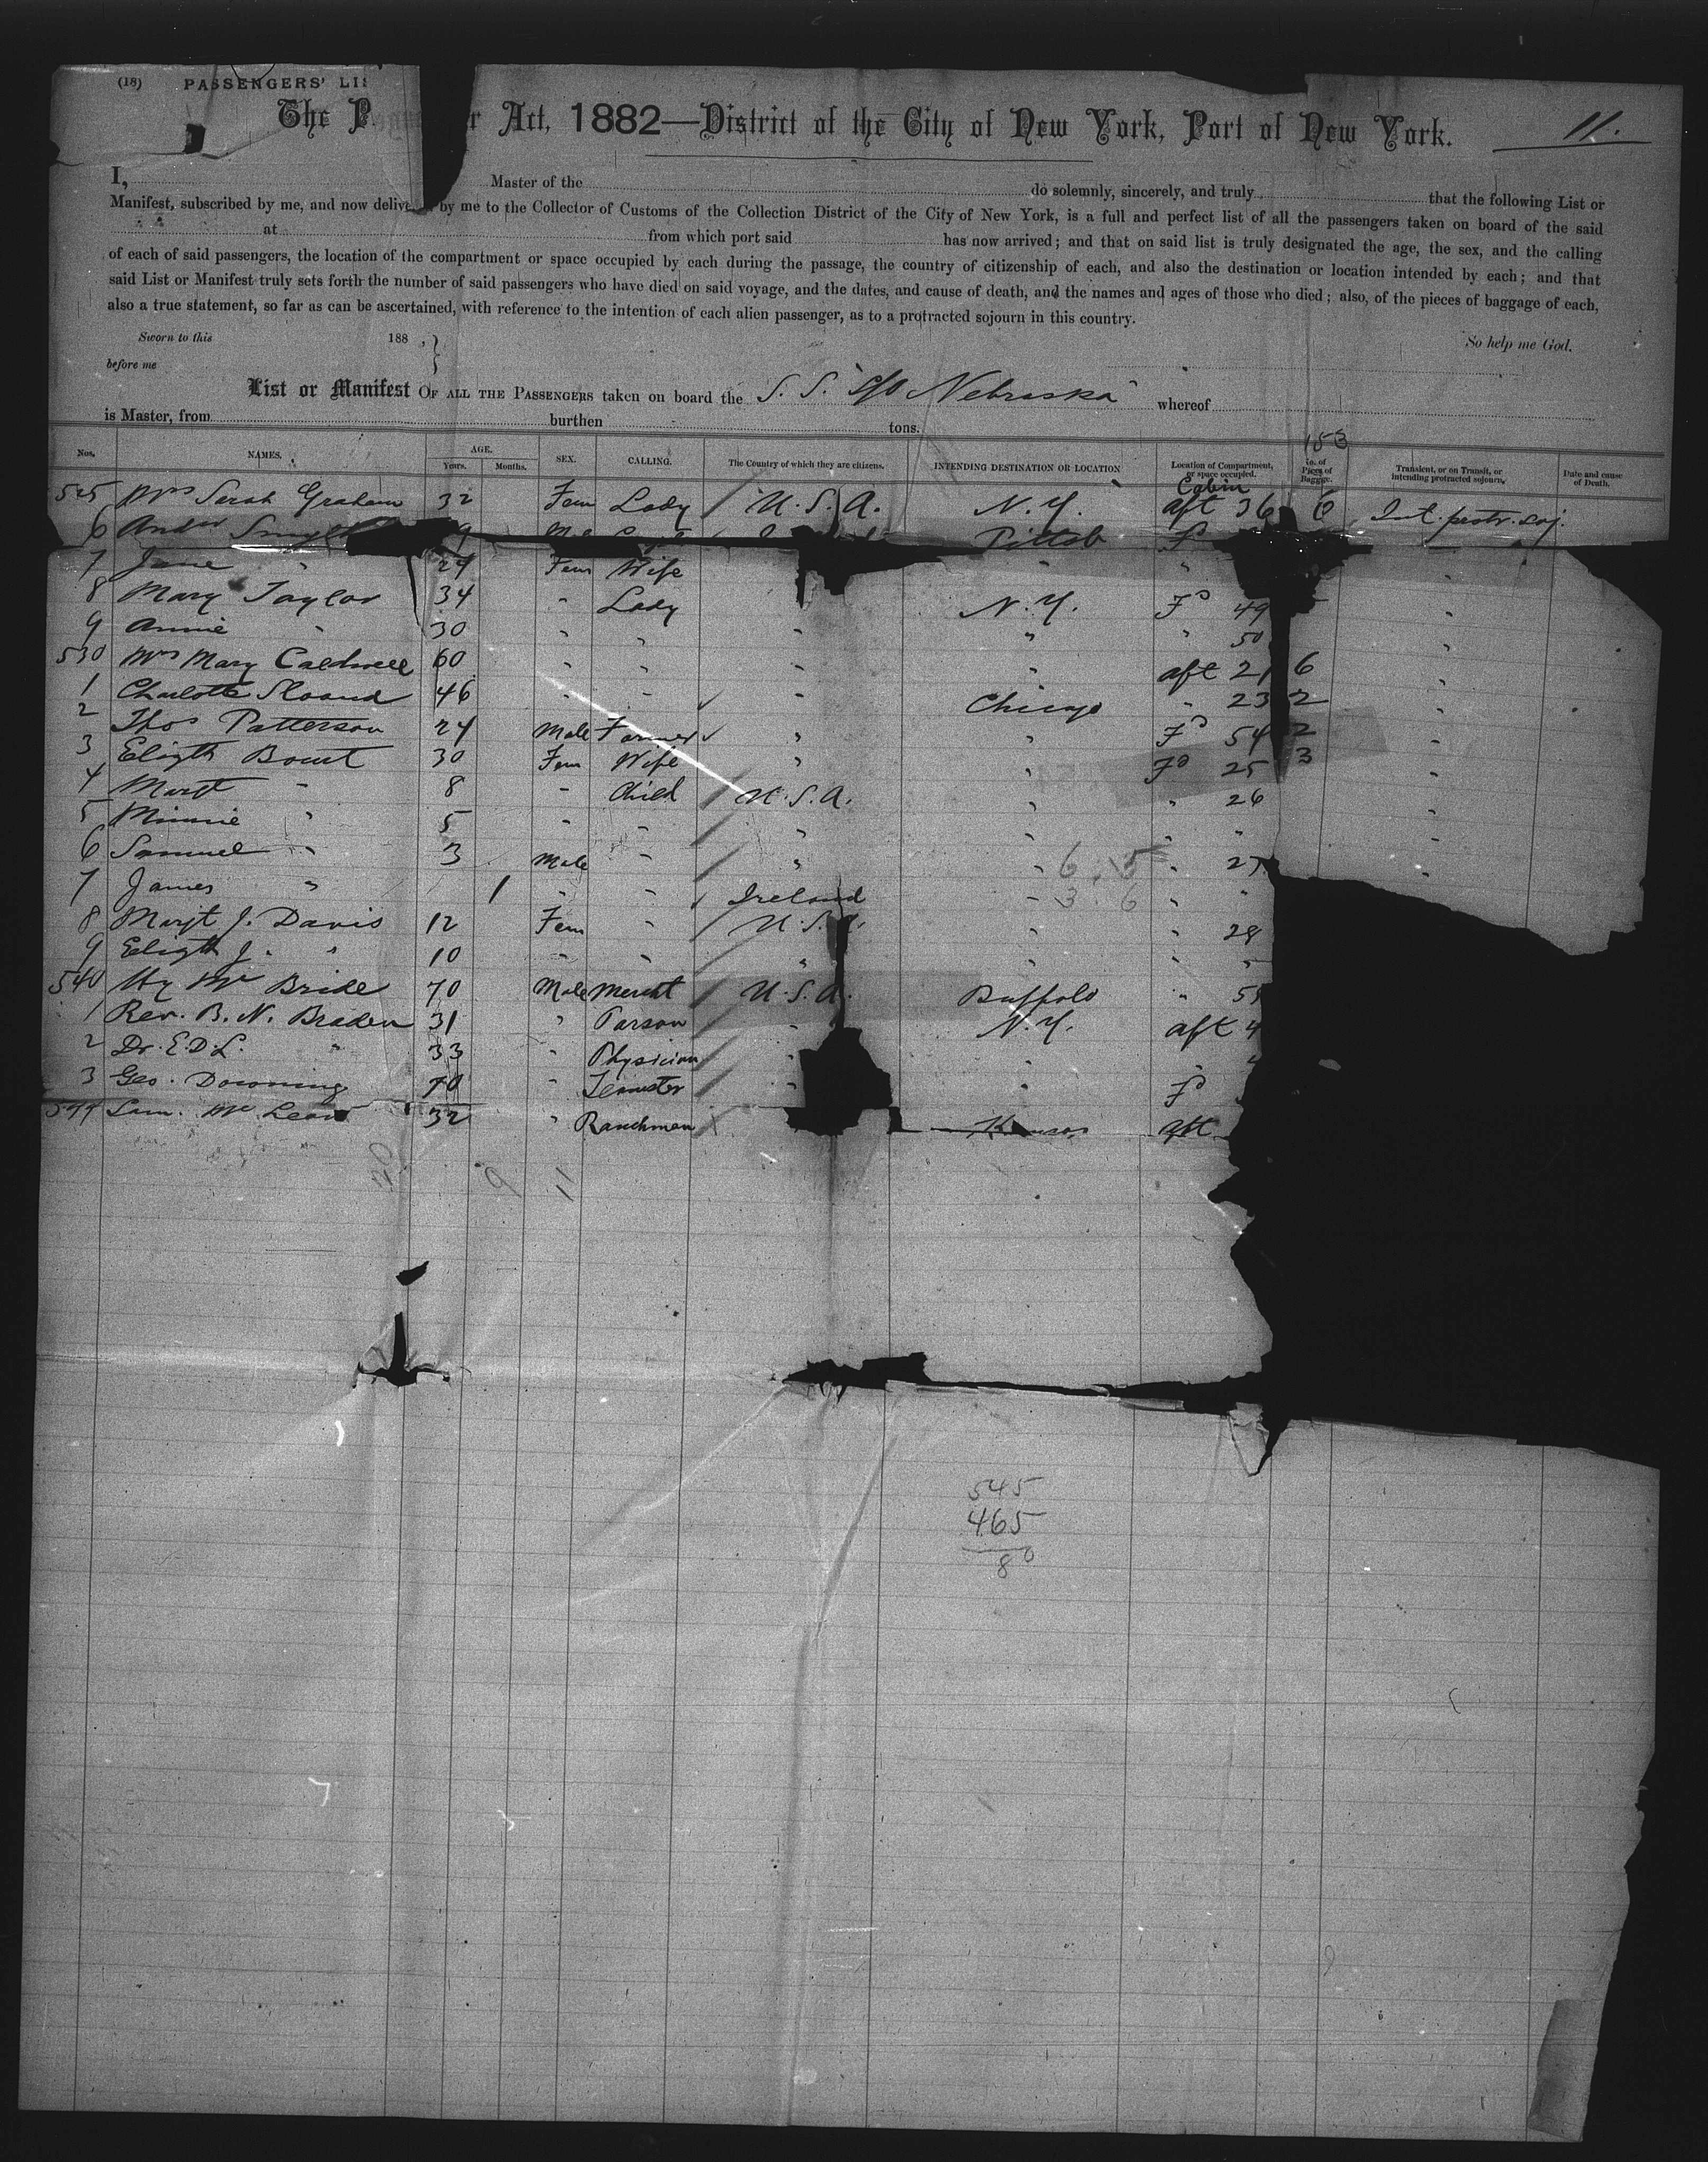 (18) PASSENGERS' LI
The P er Act, 1882—District of the City of New York, Port of New York.
11.
I, Master of the do solemnly, sincerely, and truly that the following List or
Manifest, subscribed by me, and now deliv by me to the Collector of Customs of the Collection District of the City of New York, is a full and perfect list of all the passengers taken on board of the said
at from which port said has now arrived; and that on said list is truly designated the age, the sex, and the calling
of each of said passengers, the location of the compartment or space occupied by each during the passage, the country of citizenship of each, and also the destination or location intended by each; and that
said List or Manifest truly sets forth the number of said passengers who have died on said voyage, and the dates, and cause of death, and the names and ages of those who died; also, of the pieces of baggage of each,
also a true statement, so far as can be ascertained, with reference to the intention of each alien passenger, as to a protracted sojourn in this country.
Sworn to this 188 , } So help me God.
before me
List or Manifest OF ALL THE PASSENGERS taken on board the S. S. S/O Nebraska whereof
is Master, from burthen tons.
153
Nos. NAMES. AGE. Years. Months. SEX. CALLING. The Country of which they are citizens. INTENDING DESTINATION OR LOCATION Location of Compartment, or space occupied. No. of Pieces of Baggage. Transient, or on Transit, or intending protracted sojourn. Date and cause of Death.
Cabin
525 Mrs Sarah Graham 32 Fem Lady / U.S.A. N.Y. aft 36 6 Int. protr. soj.
6 Andw Smyth Pittsb
7 Jane " 24 Fem Wife " "
8 Mary Taylor 34 " Lady N.Y. Fd 49 "
9 Annie " 30 " " " " " 50 "
530 Mrs Mary Caldwell 60 " " " " aft 21 6 "
1 Charlotte Sloand 46 " " " Chicago " 23 2 "
2 Thos Patterson 24 Male Farmer " " Fd 54 2 "
3 Elizth Bount 30 Fem Wife " " Fd 25 3 "
4 Margt " 8 " Child / U.S.A. " " 26 "
5 Minnie " 5 " " / " " " " "
6 Samuel " 3 Male " / " " " 27
7 James " 1 " " / Ireland " "
8 Margt J. Davis 12 Fem " / U.S.A. " " 28
9 Elizth J. " 10 " " / " " " "
540 Hy Mc Bride 70 Male Mercht / U.S.A. Buffalo " 5
1 Rev. B. N. Braden 31 " Parson / " N.Y. aft 4
2 Dr. E.D.L. " 33 " Physician / " "
3 Geo. Downing 70 " Teamster / " " Fd
544 Sam. Mc Lean 32 " Ranchman Kansas aft
9 11
545
465
80